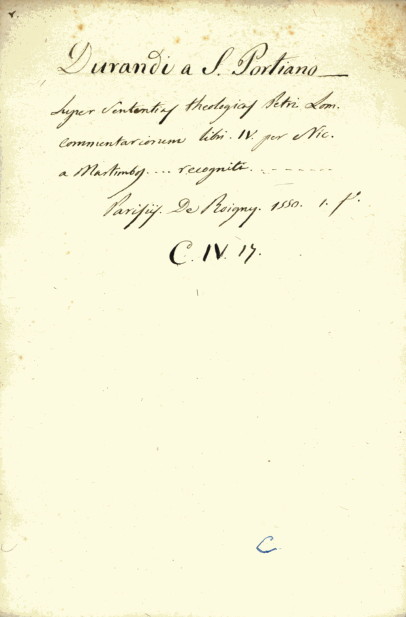 Durandi a S. Portiano
super Sententias theologicas Petri Lom.
commentariorum libri. IV. per Nic.
a Martimbos.... recogniti.
Parisiis. De Roigny. 1550. 1. f°.
C. IV. 17.
C